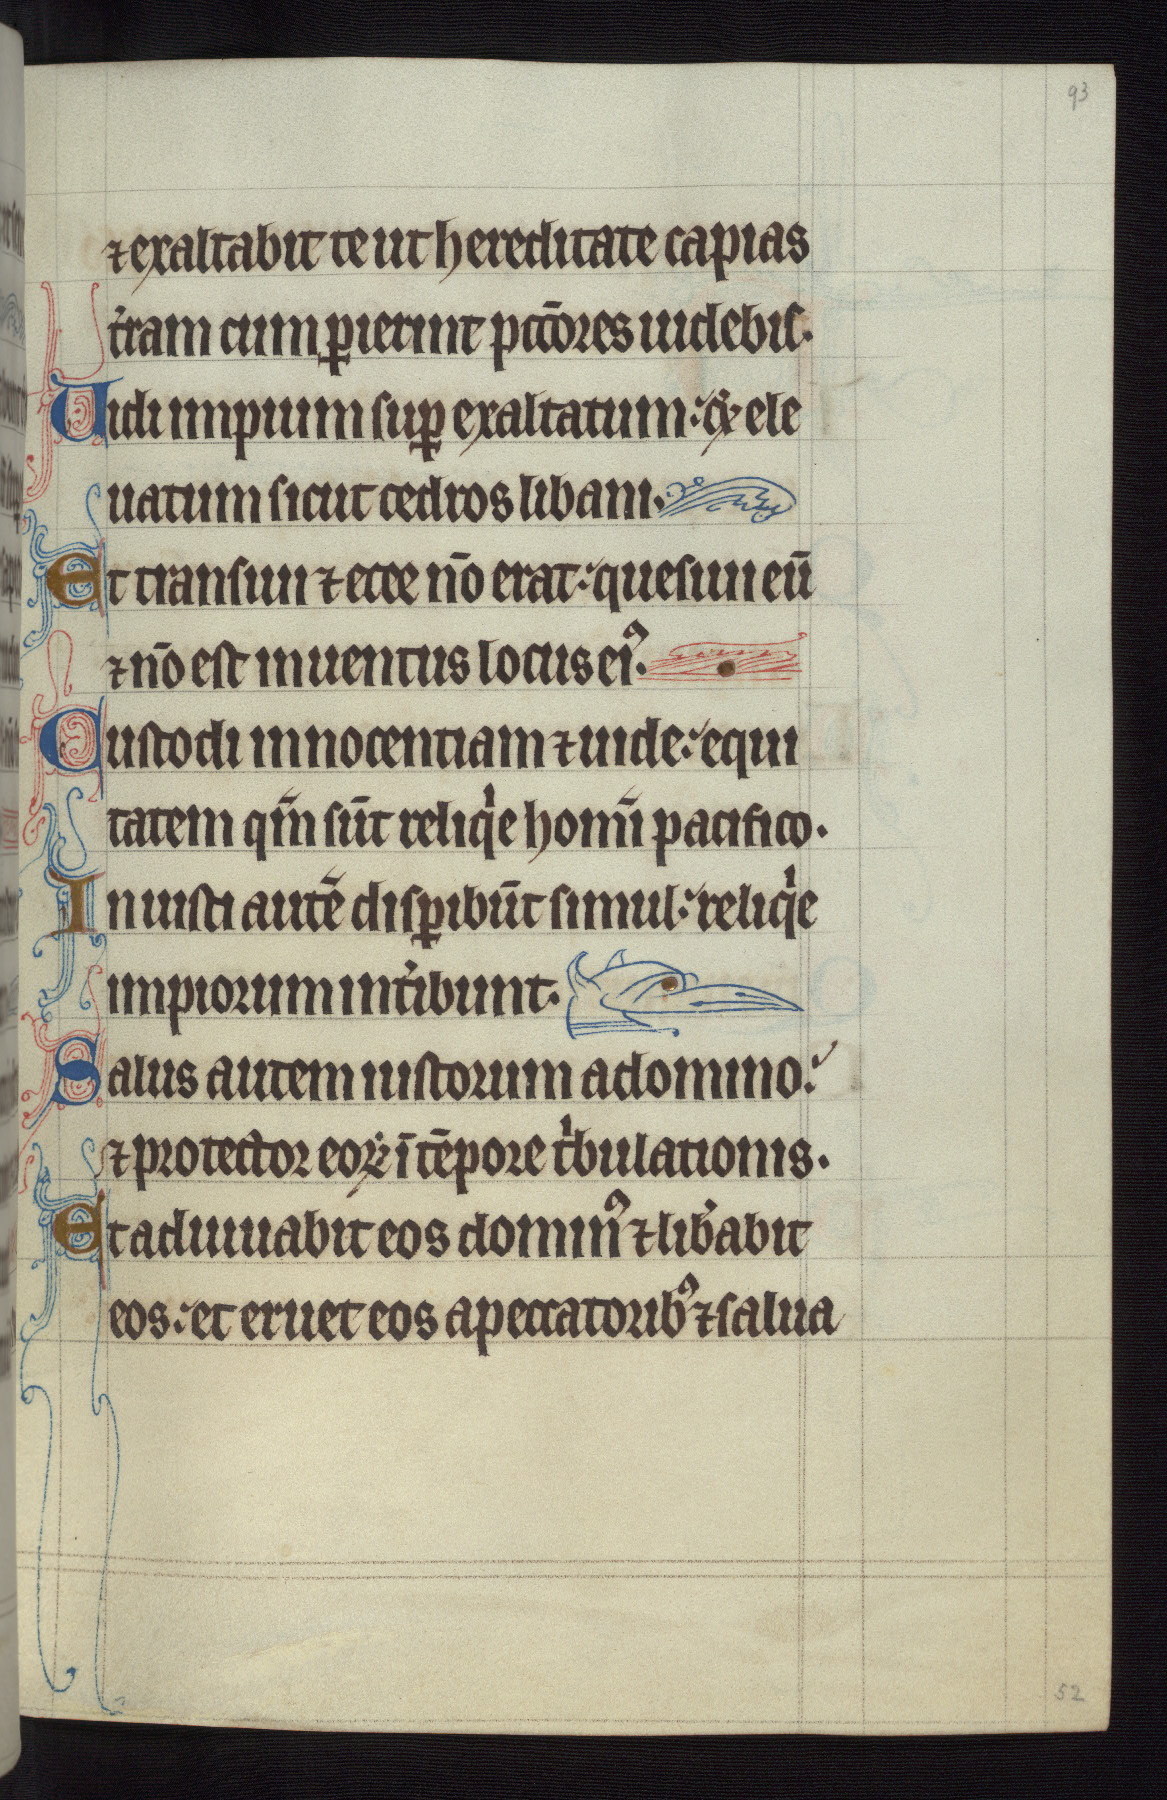 93
⁊ exaltabit te ut hereditate capias
t̾ram cum ꝑierint pcc̄ores uidebis.
Uidi impium suꝑ exaltatum: ⁊ ele
uatum sicut cedros libani.
Et transiui ⁊ ecce nō erat: quesiui eū
⁊ nō est inuentus locus eiꝰ.
Custodi innocentiam ⁊ uide: equi
tatem qm̄ sūt reliqⁱe homī pacifico.
Iniusti autē disꝑibūt simul: reliqⁱe
impiorum int̾ibunt.
Salus autem iustorum a domino:
⁊ protector eoꝝ ī tēpore tⁱbulationis.
Et adiuuabit eos dominꝰ ⁊ lib̾abit
eos: et eruet eos a peccatoribꝰ ⁊ salua
52